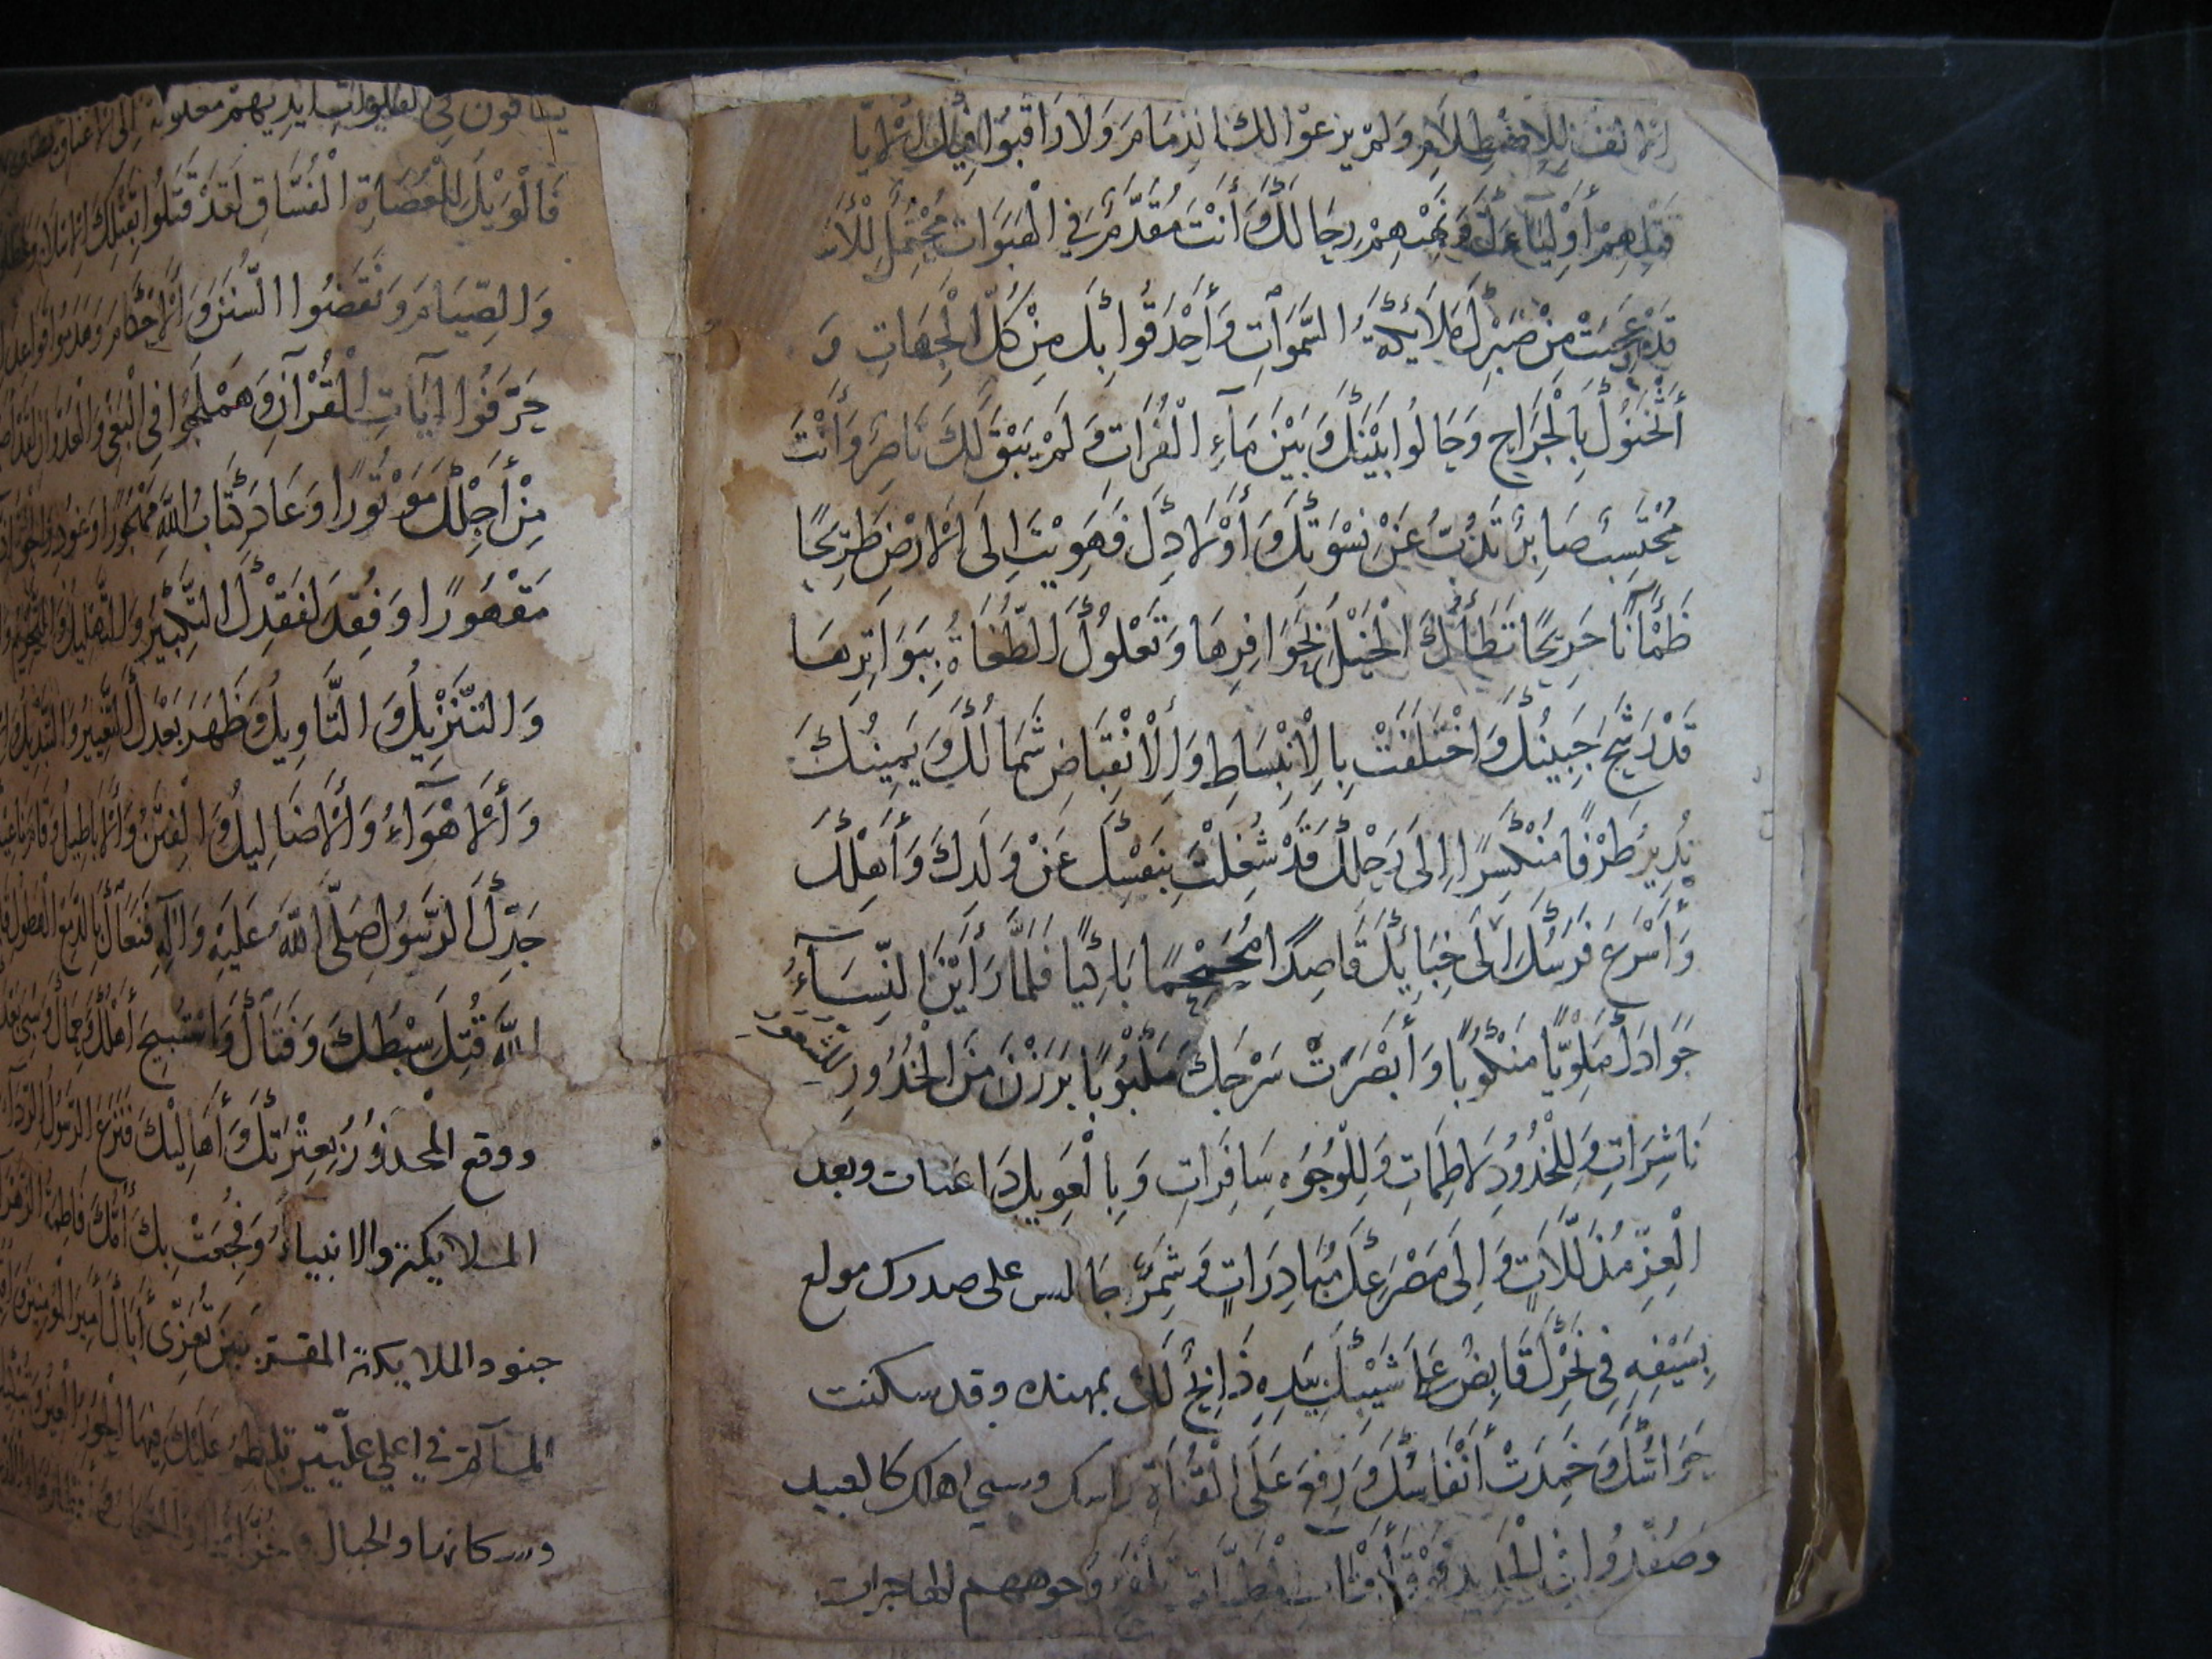 ولم يرعوا لك ذمام ولا راقبوا فيك اثاما
قتلهم أولياءك ونهبهم رحالك وأنت مقدم في الهبوات محتمل للأذ
قد عجبت من صبرك ملائكة السموات وأحدقوا بك من كل الجهات و
أثخنوك بالجراح وحالوا بينك وبين ماء الفرات ولم يبق لك ناصر وأنت
محتسب صابر تذب عن نسوتك وأولادك فهويت إلى الأرض طريحا
ظمآنا جريحا تطأك الخيل بحوافرها وتعلوك الطغاة ببواترها
قد رشح جبينك واختلفت بالانبساط والانقباض شمالك ويمينك
تدير طرفا منكسرا إلى رحلك قد شغلت بنفسك عن ولدك وأهلك
وأسرع فرسك إلى خبائك قاصدا محمحما باكيا فلما رأين النساء
جوادك ملويا منكوبا وأبصرت سرجك ملبوبا برزن من الخدور للشعور
ناشرات وللخدود لاطمات وللوجوه سافرات وبالعويل داعيات وبعد
العز مذللات وإلى مصرعك مبادرات وشمر جالس على صدرك مولع
بسيفه في نحرك قابض على شيبتك بيده ذابح لك بمهنده وقد سكنت
حواسك وخمدت أنفاسك ورفع على القناة راسك وسبي اهلك كالعبيد
وصفدوا في الحديد فوق أقتاب المطيات تلفح وجوههم الهاجرات
يساقون في الفلوات أيديهم مغلولة إلى الأعناق
فالويل للعصاة الفساق لقد قتلوا بقتلك الإسلام وعطلوا
والصيام ونقضوا السنن والأحكام وهدموا قواعد
حرفوا آيات القرآن وهملجوا في البغي والعدوان لقد
من أجلك موتورا وعاد كتاب الله مهجورا وغودر الحق اذ
مقهورا وفقد لفقدك التكبير والتهليل والتحريم و
والتنزيل والتاويل وظهر بعدك التغيير والتبديل و
والأهواء والأضاليل والفتن والأباطيل وقام ناعيك
جدك الرسول صلى الله عليه وآله فنعاك بالدمع الهطول
الله قتل سبطك وفتاك واستبيح أهلك وحماك وسبي بعدك
ووقع المحذور بعترتك وأهاليك فنزع الرسول الرداء
الملائكة والانبياء وفجعت بك أمك فاطمة الزهراء
جنود الملائكة المقربين تعزي أباك أمير المؤمنين
المآتم في اعلى عليين تلطم عليك فيها الحور العين
وسكانها والجبال وخزانها